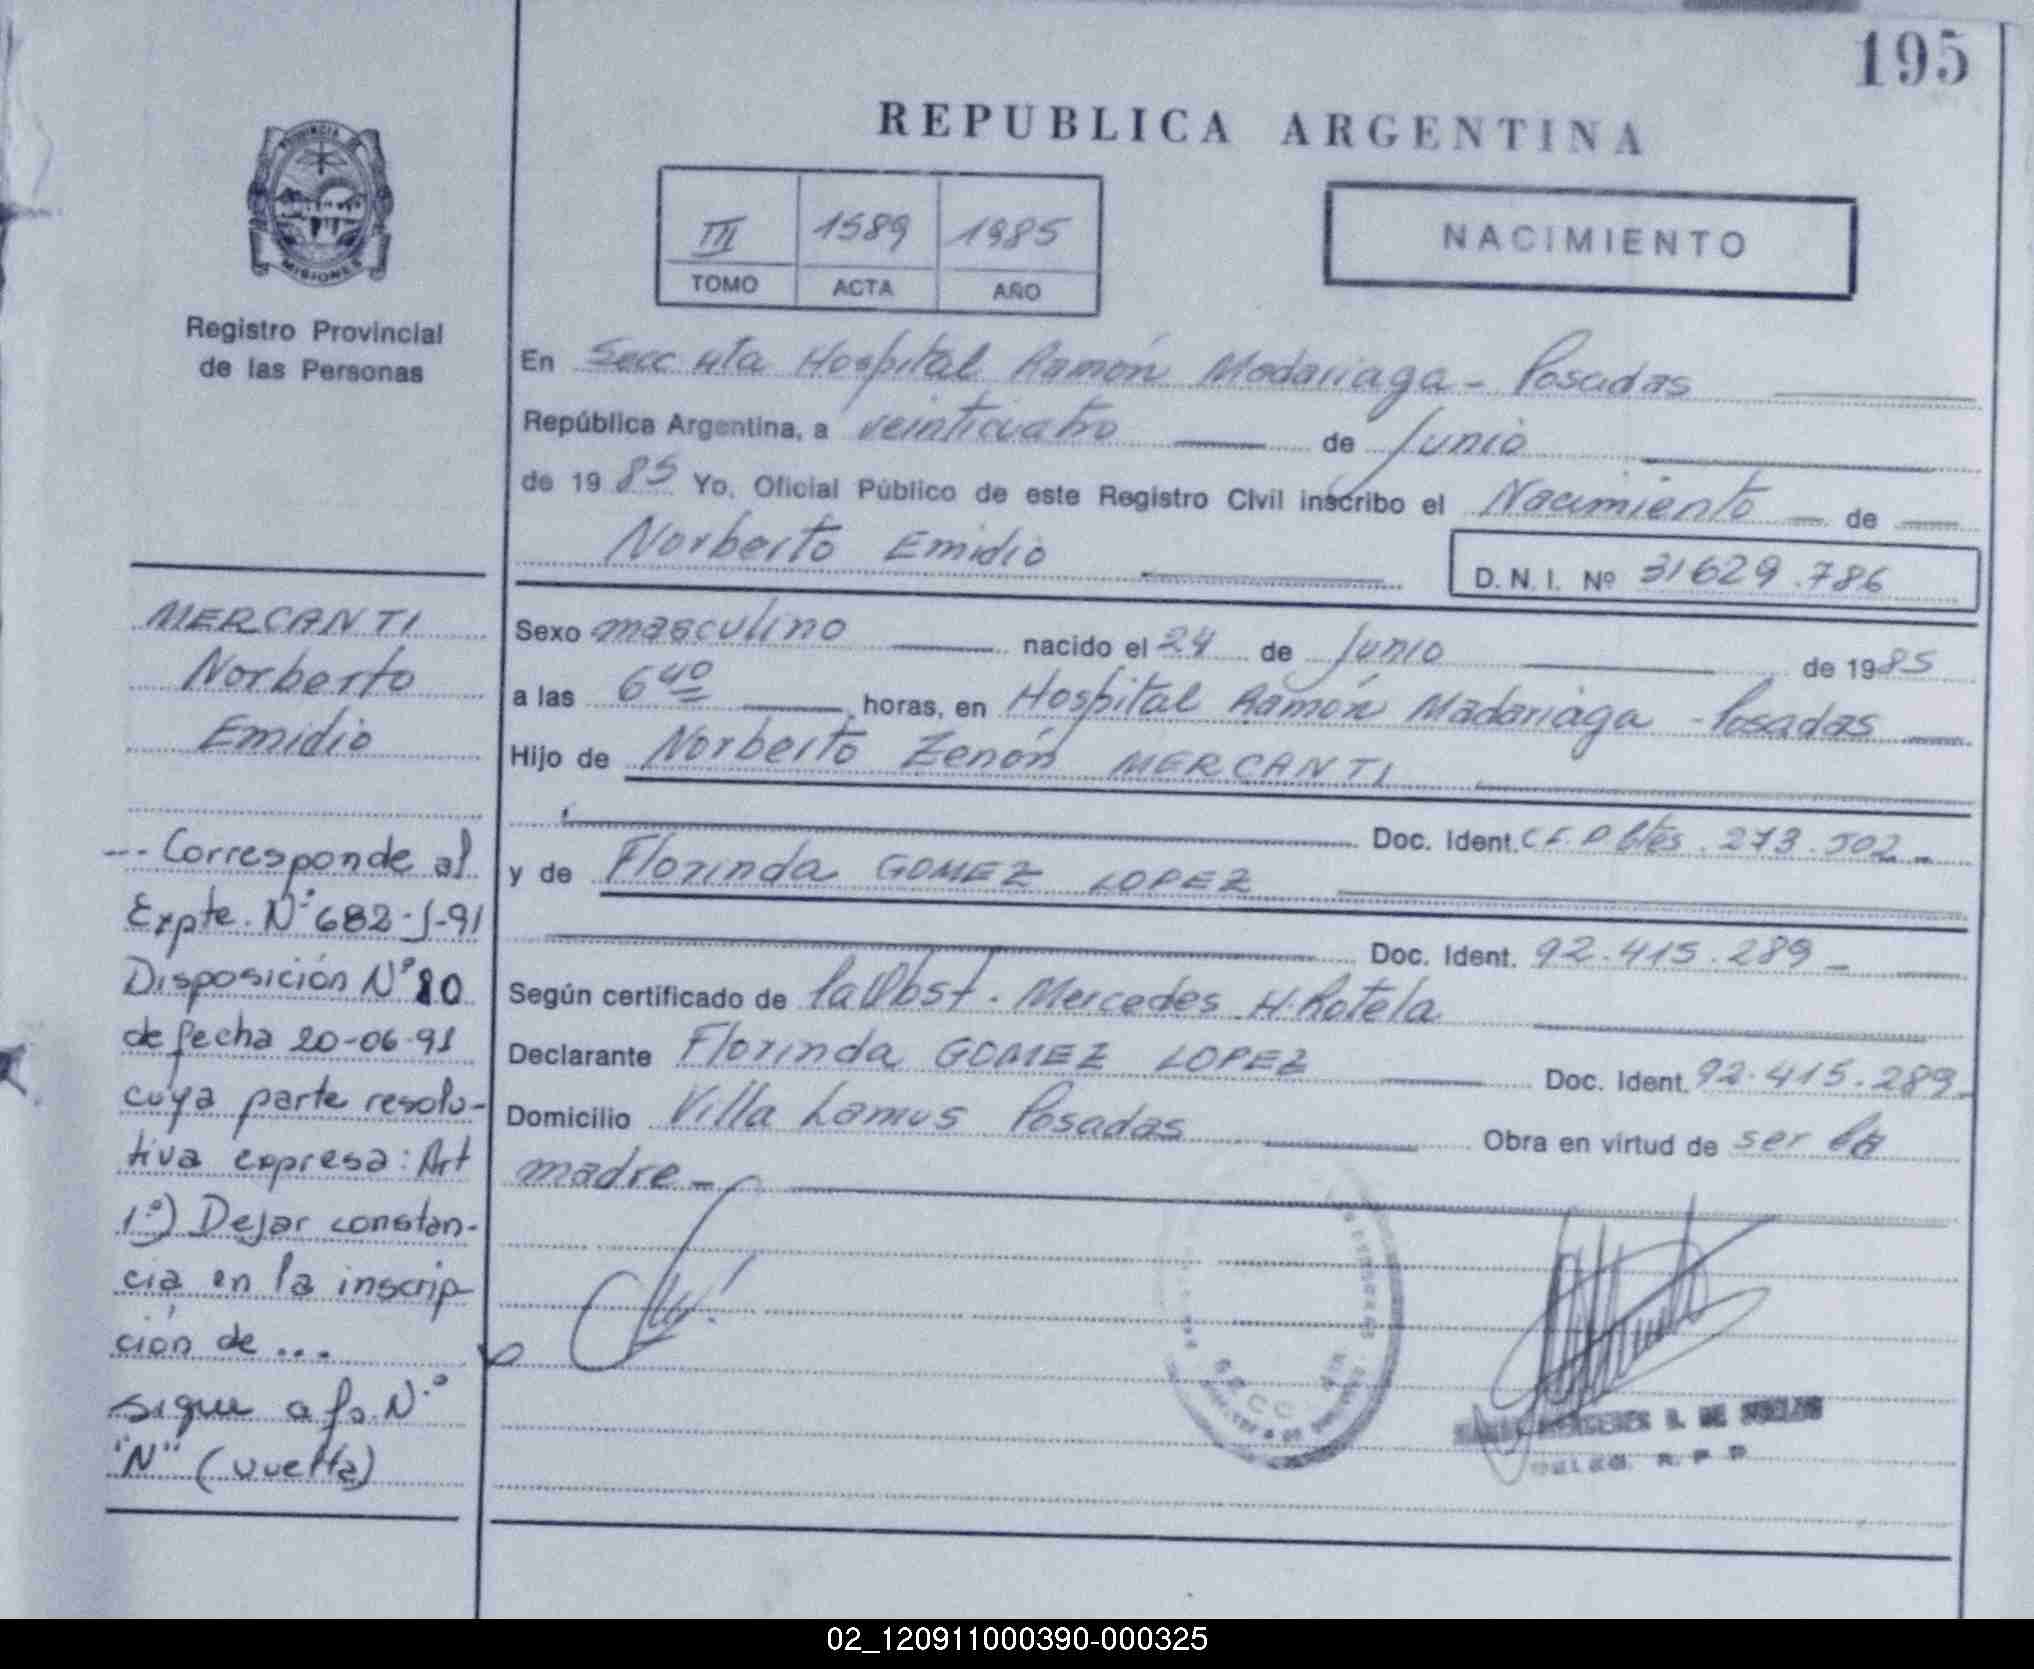 195
REPUBLICA ARGENTINA
PROVINCIA DE
MISIONES
Registro Provincial
de las Personas
III 1589 1985
TOMO ACTA AÑO
NACIMIENTO
En Secc 4ta Hospital Ramón Madariaga - Posadas
República Argentina, a veinticuatro de Junio
de 1985 Yo, Oficial Público de este Registro Civil inscribo el Nacimiento de
Norberto Emidio
D. N. I. Nº 31629.786
Sexo masculino nacido el 24 de Junio de 1985
a las 6 40 horas, en Hospital Ramón Madariaga - Posadas
Hijo de Norberto Zenón MERCANTI
Doc. Ident. 273.502 -
y de Florinda GOMEZ LOPEZ
Doc. Ident. 92.415.289 -
Según certificado de la Obst. Mercedes H. Rotela
Declarante Florinda GOMEZ LOPEZ Doc. Ident. 92.415.289 -
Domicilio Villa Lanus Posadas Obra en virtud de ser la
madre -
MERCANTI
Norberto
Emidio
-- Corresponde al
Expte. Nº 682-J-91
Disposición Nº 80
de fecha 20-06-91
cuya parte resolu-
tiva expresa: Art
1º) Dejar constan-
cia en la inscrip-
ción de ...
sigue a fo. Nº
"N" (vuelta)
SECC
DE
R. P. P.
02_120911000390-000325